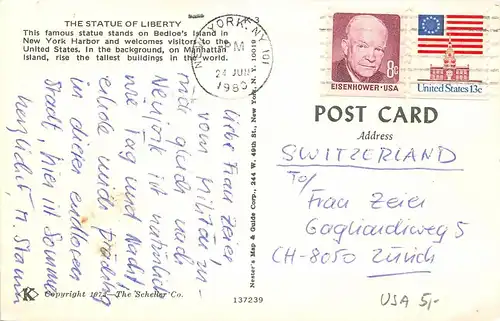 THE STATUE OF LIBERTY
This famous statue stands on Bedloe's Island in
New York Harbor and welcomes visitors to the
United States. In the background, on Manhattan
Island, rise the tallest buildings in the world.
NEW YORK, NY 101
PM
24 JUN
1980
8c
EISENHOWER·USA
United States 13c
POST CARD
Address
SWITZERLAND
To/
Frau Zeier
Gagliardiweg 5
CH-8050 Zürich
USA 5,-
Liebe Frau Zeier,
vom Militär zu-
rück gleich nach
Newjork ist natürlich
wie Tag und Nacht!
in dieser endlosen
Stadt, hier ist Sommer
herzlichst M. Stamm
Nester's Map & Guide Corp., 244 W. 49th St., New York, N. Y. 10019
K
Copyright 1974—The Scheller Co.
137239